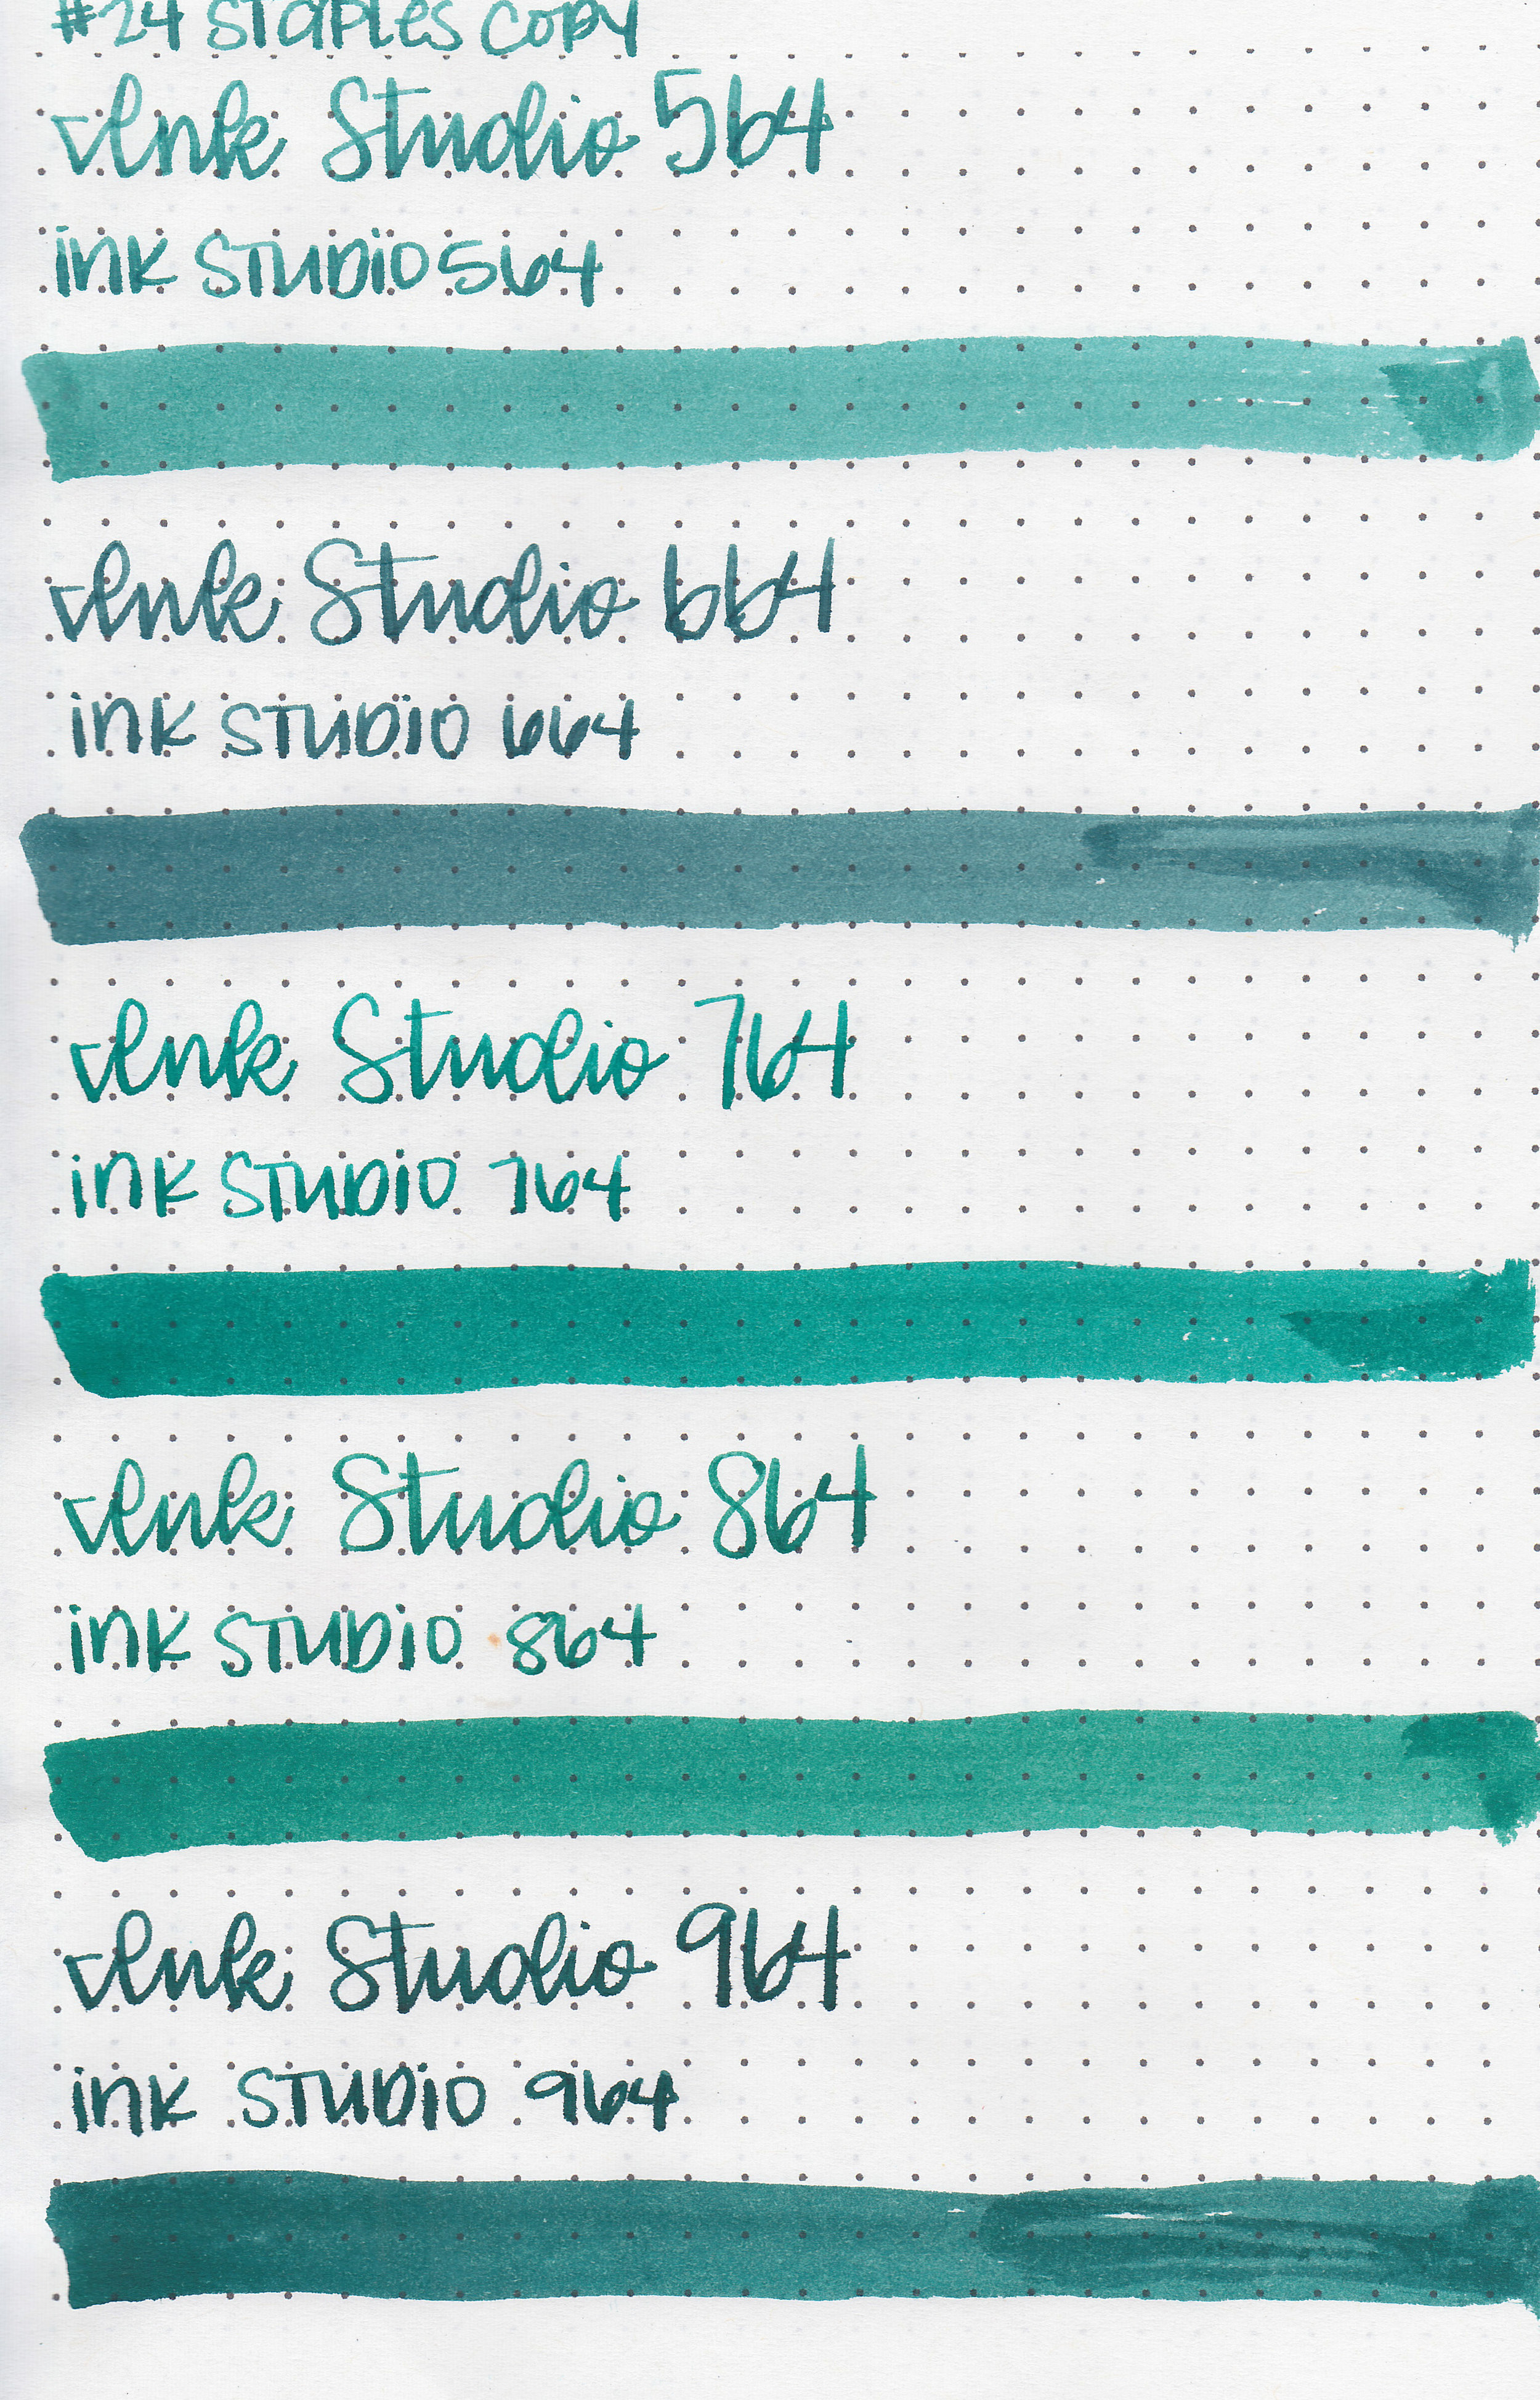 #24 STAPLES COPY
Ink Studio 564
ink STUDIO 564
Ink Studio 664
ink STUDIO 664
Ink Studio 764
ink STUDIO 764
Ink Studio 864
ink STUDIO 864
Ink Studio 964
ink STUDIO 964